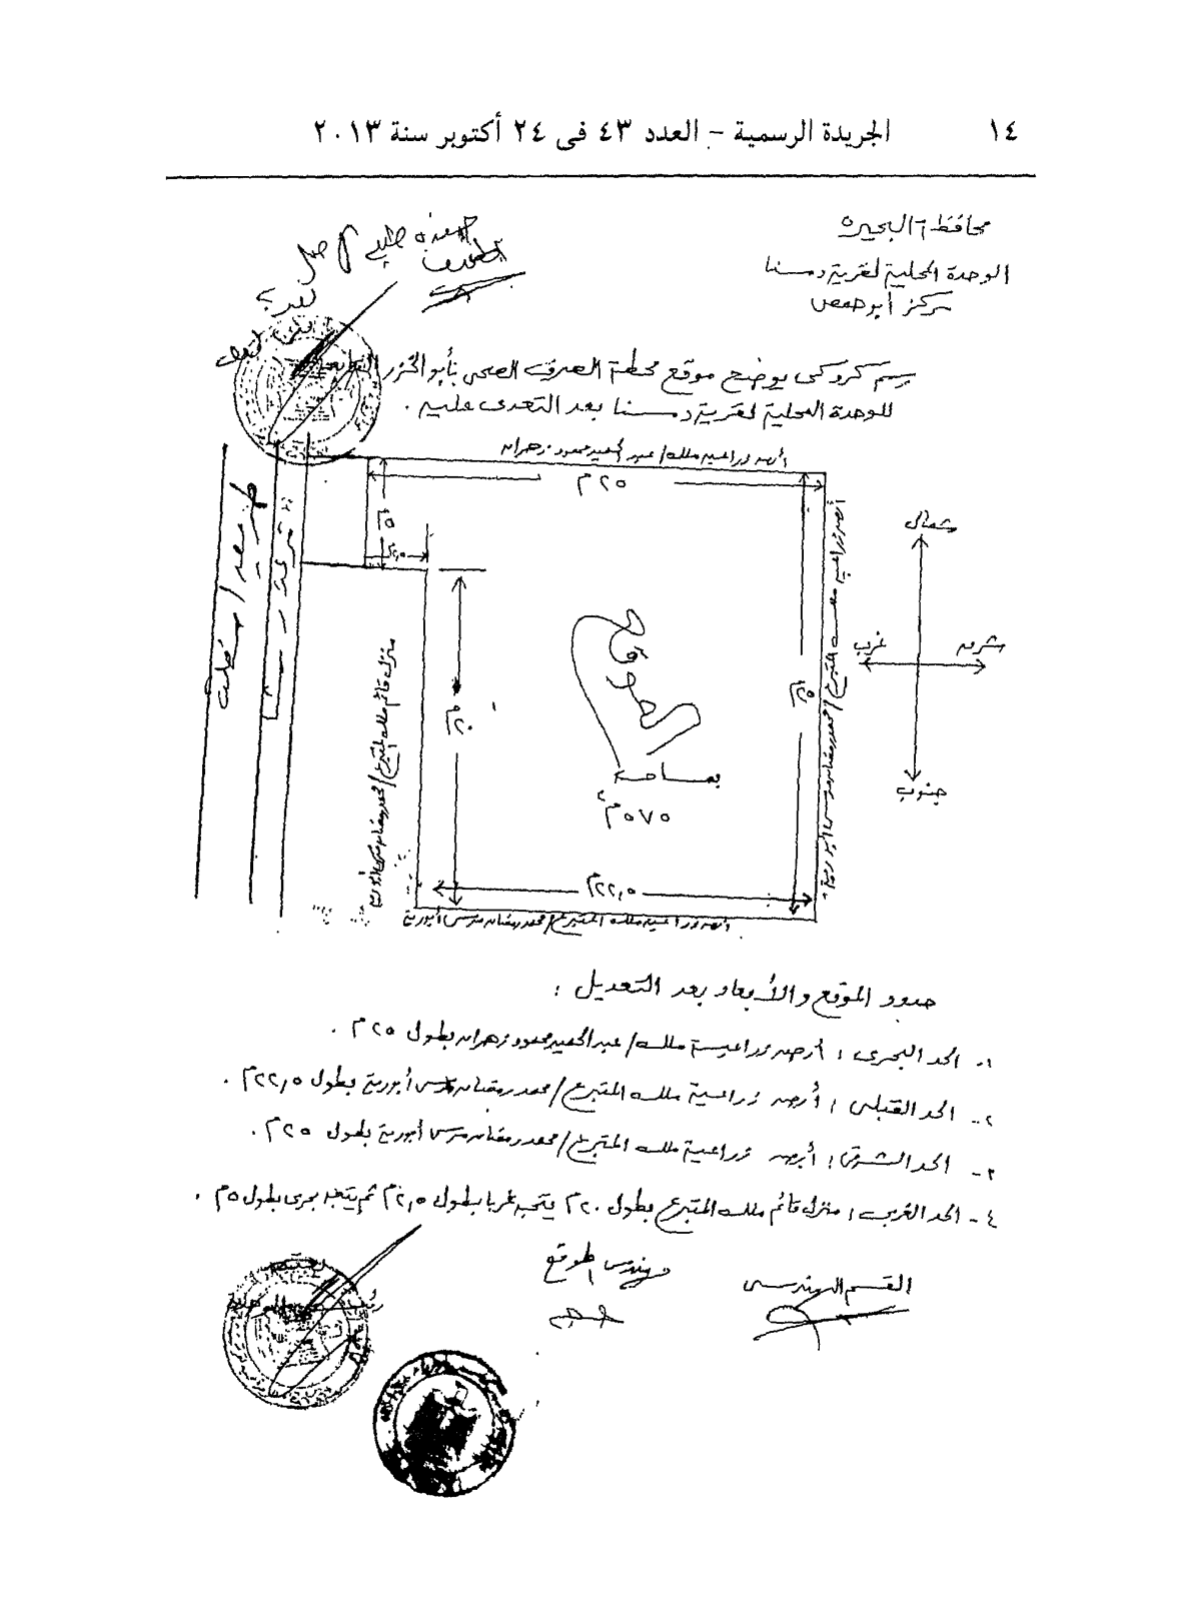 ١٤
الجريدة الرسمية - العدد ٤٣ فى ٢٤ أكتوبر سنة ٢٠١٣
محافظة البحيرة
الوحدة المحلية لقرية دمسنا
مركز أبو حمص
رسم كروكى يوضح موقع محطة الصرف الصحى بأبو الخزر التابعة
للوحدة المحلية لقرية دمسنا بعد التعدى عليه .
أرض زراعية ملك / عبد الحميد محمود زهران
٢٥ م
٥ م
٢,٥
شمال
شرق
غرب
جنوب
أرض زراعية ملك المتبرع / محمد رمضان مرسى أبو رية
٢٥ م
منزل قائم ملك المتبرع / محمد رمضان مرسى أبو رية
٢٠ م
الموقع
بمساحة
٥٧٥ م٢
٢٢,٥ م
أرض زراعية ملك المتبرع / محمد رمضان مرسى أبو رية
حدود الموقع والأبعاد بعد التعديل :
١- الحد البحرى : أرض زراعية ملك / عبد الحميد محمود زهران بطول ٢٥ م .
٢- الحد القبلى : أرض زراعية ملك المتبرع / محمد رمضان مرسى أبو رية بطول ٢٢,٥ م .
٣- الحد الشرقى : أرض زراعية ملك المتبرع / محمد رمضان مرسى أبو رية بطول ٢٥ م .
٤- الحد الغربى : منزل قائم ملك المتبرع بطول ٢٠ م يتجه غربا بطول ٢,٥ م ثم يتجه بحرى بطول ٥ م .
القسم الهندسى
مهندس الموقع